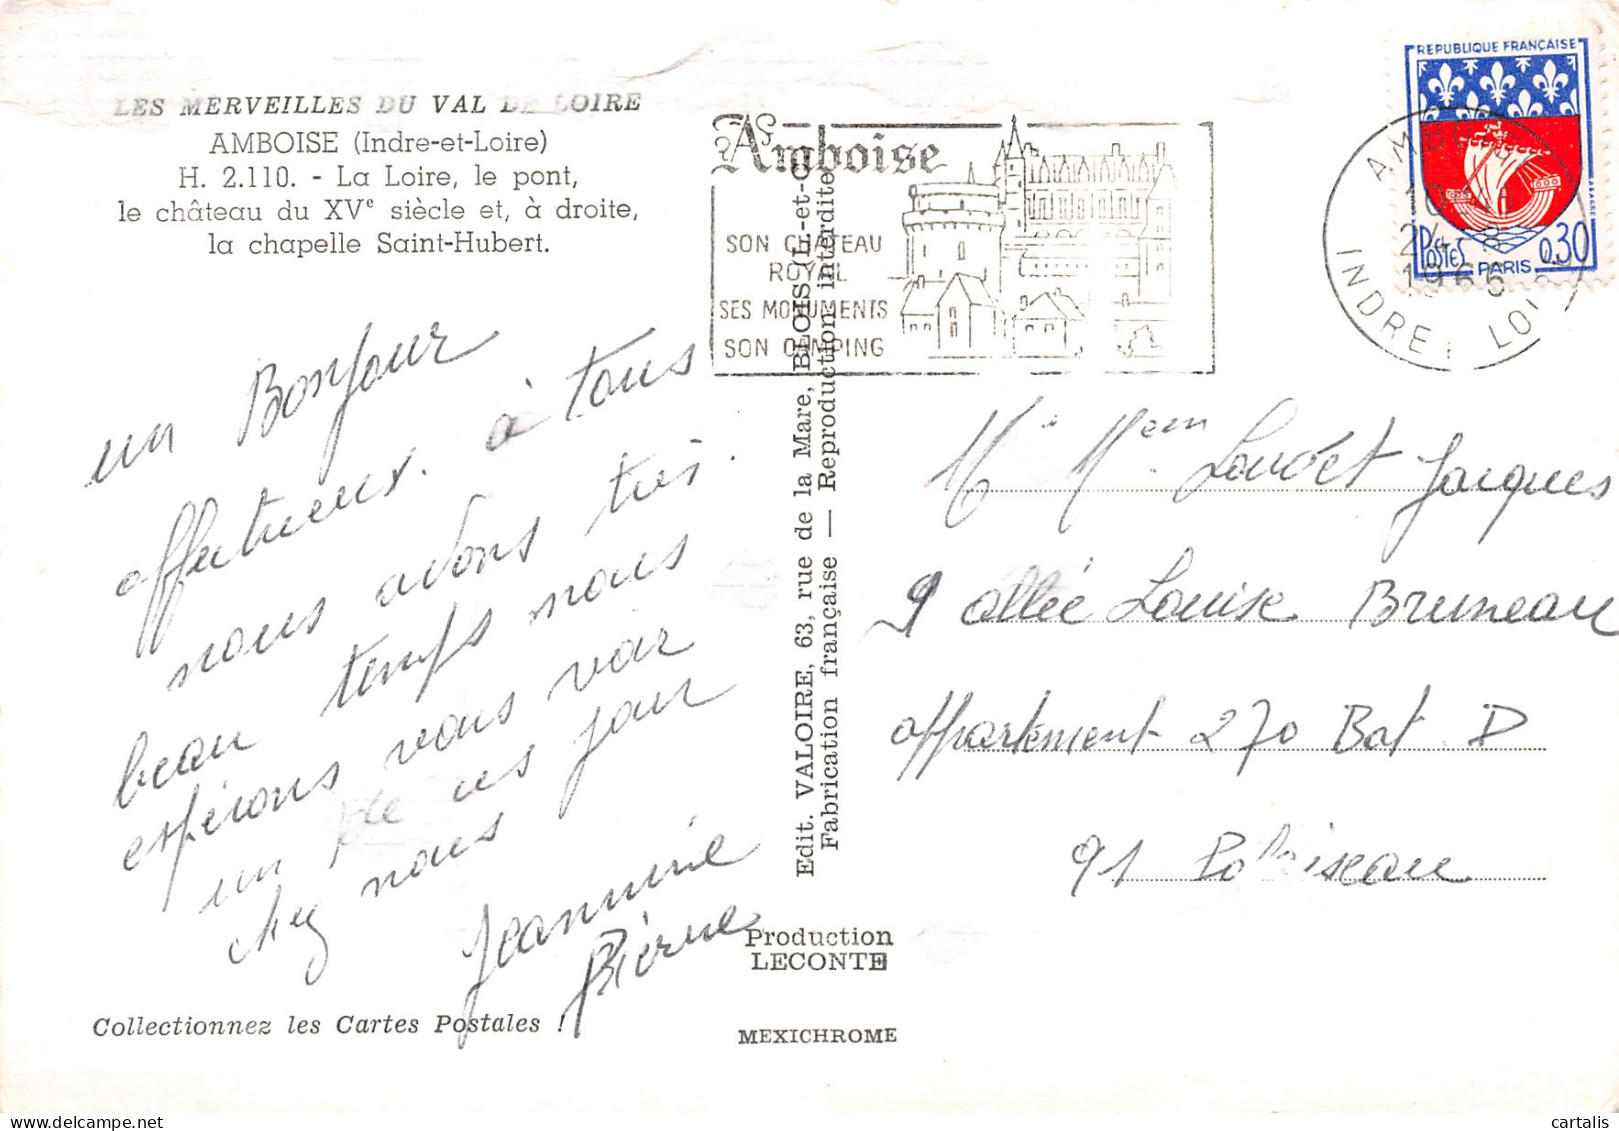 LES MERVEILLES DU VAL DE LOIRE
AMBOISE (Indre-et-Loire)
H. 2.110. - La Loire, le pont,
le château du XVe siècle et, à droite,
la chapelle Saint-Hubert.
un Bonjour
affectueux. à tous
nous avons très
beau temps nous
espérons vous voir
un de ces jour
chez nous
Jeannine
Pierre
Collectionnez les Cartes Postales !
Edit. VALOIRE, 63, rue de la Mare, BLOIS (L.-et-C
Fabrication française — Reproduction interdite
Production
LECONTE
MEXICHROME
Amboise
SON CHATEAU
ROYAL
SES MONUMENTS
SON CAMPING
AMBOISE
24 - 8
1966
INDRE ET LOIRE
REPUBLIQUE FRANÇAISE
POSTES 0,30
PARIS
Mr Mem Loudet Jacques
9 allée Louise Bruneau
appartement 270 Bat. D
91 Palaiseau
cartalis
delcampe.net